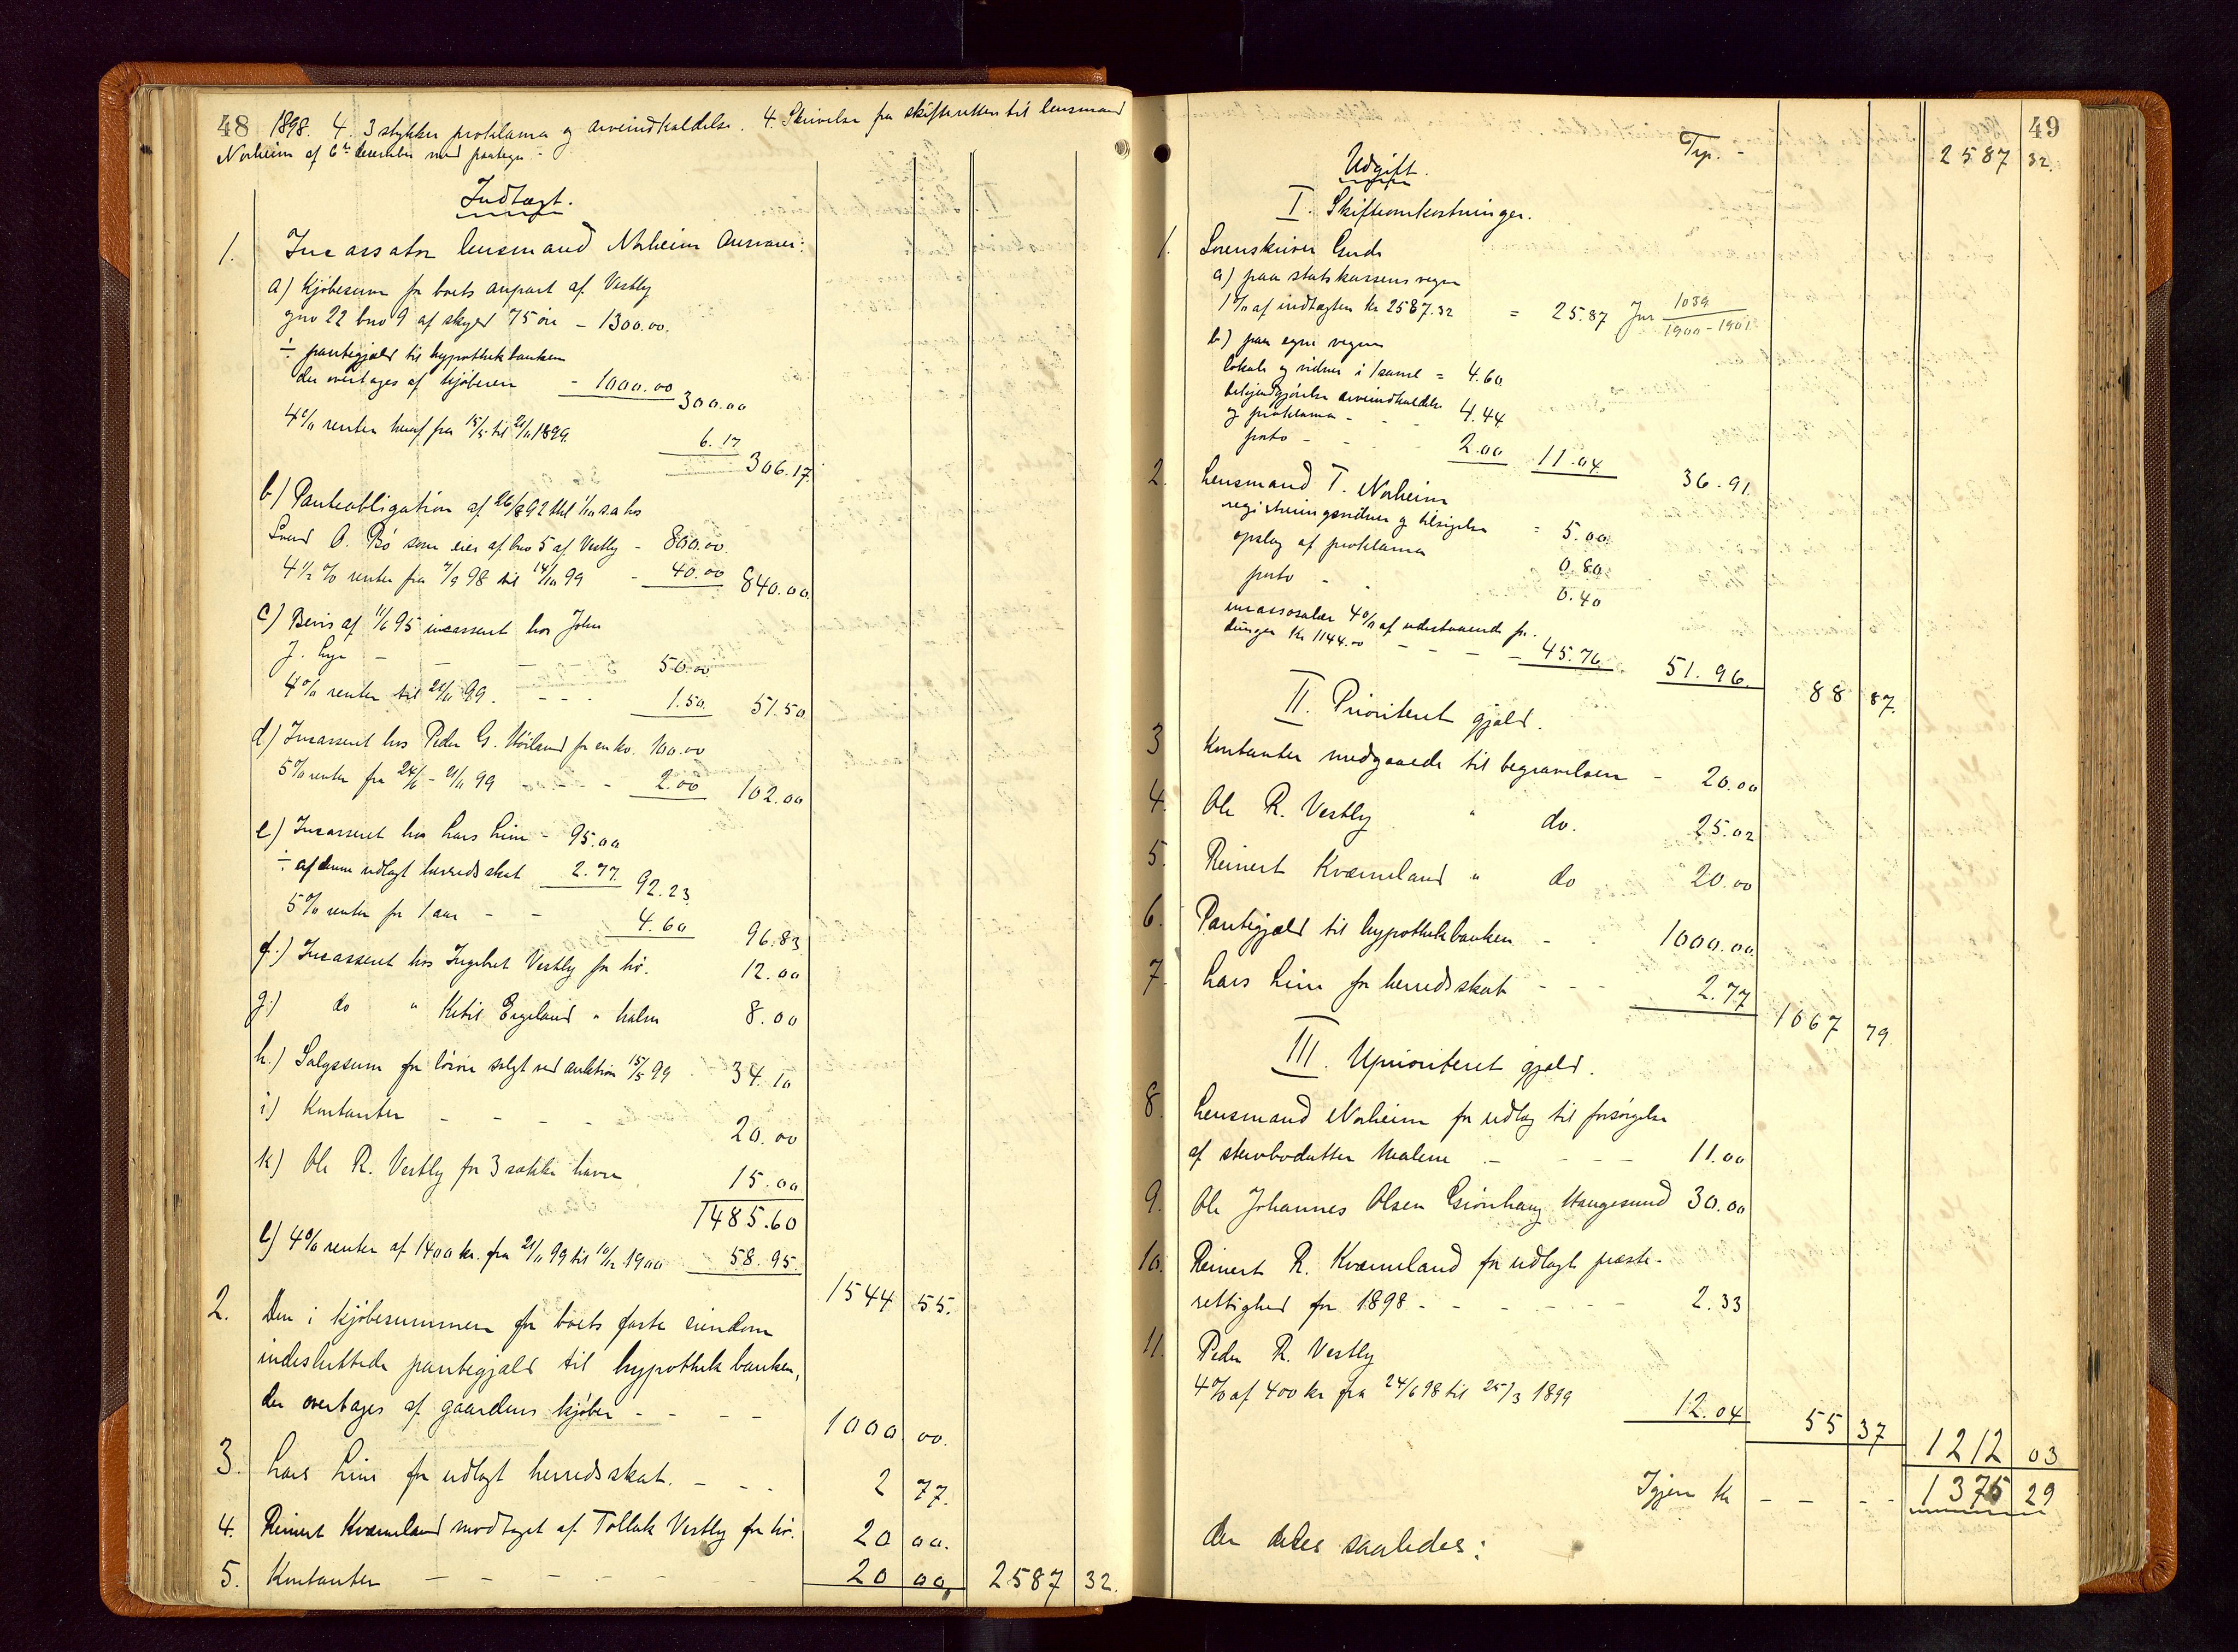 48 1898. 4. 3 stykker proklama og arveindkaldelse. 4. Skrivelse fra skifteretten til lensmand
Norheim af 6te december med paategn -
Indtægt.
1. Incassator lensmand Norheim Ansvarer:
a) Kjøbesum for boets anpart af Vestly
gno 22 bno 9 af skyld 75 øre - 1300.00.
÷ pantegjæld til hypothekbanken
der overtages af kjøberen - 1000.00 300.00
4% renter heraf fra 15/5 til 21/11 1899. 6.17 306.17.
b) Panteobligation af 26/8 92 thl 1/10 s.a hos
Svend O. Bø som eier af bno 5 af Vestly - 800.00.
4 1/2 % renter fra 7/9 98 til 14/10 99 - 40.00 840.00.
c) Bevis af 11/6 95 incasseret hos John
J. Lye - - - 50.00
4% renter til 21/11 99. - - - 1.50. 51.50
d) Incasseret hos Peder G. Høiland for en ko. 100.00
5% renter fra 24/6 - 21/11 99 - - - 2.00 102.00
e) Incasseret hos Lars Lime - 95.00
÷ af denne udlagt herredsskat 2.77. 92.23
5% renter for 1 aar - - 4.60 96.83
f.) Incasseret hos Ingebret Vestly for hø. 12.00
g.) do " Ketil Eigeland " halm 8.00
h.) Salgssum for løsøre solgt ved auktion 15/5 99 34.10
i) Kontanter - - - - - 20.00
k) Ole R. Vestly for 3 sække havre 15.00
1485.60
l) 4% renter af 1400 kr. fra 21/11 99 til 10/12 1900 58.95.
1544 55.
2. Den i kjøbesummen for boets faste eiendom
indesluttede pantegjæld til hypothekbanken,
der overtages af gaardens kjøber - - - - 1000 00.
3. Lars Lime for udlagt herredsskat. - - - 2 77.
4. Reinert Kværneland modtaget af Tollak Vestly for hø. 20 00.
5. Kontanter - - - - - 20 00, 2587 32.
49
Trp. - 2587 32.
Udgift.
I. Skifteomkostninger.
1. Sorenskriver Gude
a) paa statskassens vegne
1% af indtægten kr 2587.32 = 25.87 Jnr 1039/1900-1901
b) paa egne vegne
lokale og vidner i 1 saml = 4.60.
bekjendtgjørelse arveindkaldelse
og proklama - - - 4.44
porto - - - 2.00 11.04. 36.91.
2. Lensmand T. Norheim
registreringsvidner og tilsigelse = 5.00.
opslag af proklama 0.80.
porto - 0.40
incassosalær 4% af udestaaende for-
dringer kr 1144.00 - - - - 45.76. 51.96. 88 87.
II. Prioriteret gjæld.
3 Kontanter medgaaede til begravelsen - 20.00
4. Ole R. Vestly " do. 25.02
5. Reinert Kværneland " do 20.00
6. Pantegjæld til hypothekbanken - - 1000.00.
7. Lars Lime for herredsskat - - - 2.77
1067 79.
III. Uprioriteret gjæld.
8. Lensmand Norheim for udlæg til forsørgelse
af stervbodatter Malene - - - - 11.00
9. Ole Johannes Olsen Grønhaug Haugesund 30.00
10. Reinert R. Kværneland for udlagt preste-
rettighed for 1898 - - - - - - 2.33
11. Peder R. Vestly
4% af 400 kr fra 24/6 98 til 25/3 1899 12.04 55 37 1212 03
Igjen kr - - - - 1375 29
der deles saaledes: